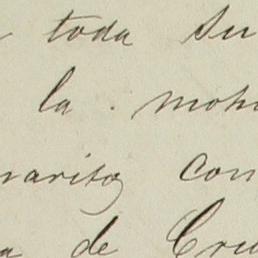 toda su
la . moh
narito con
a de Cru